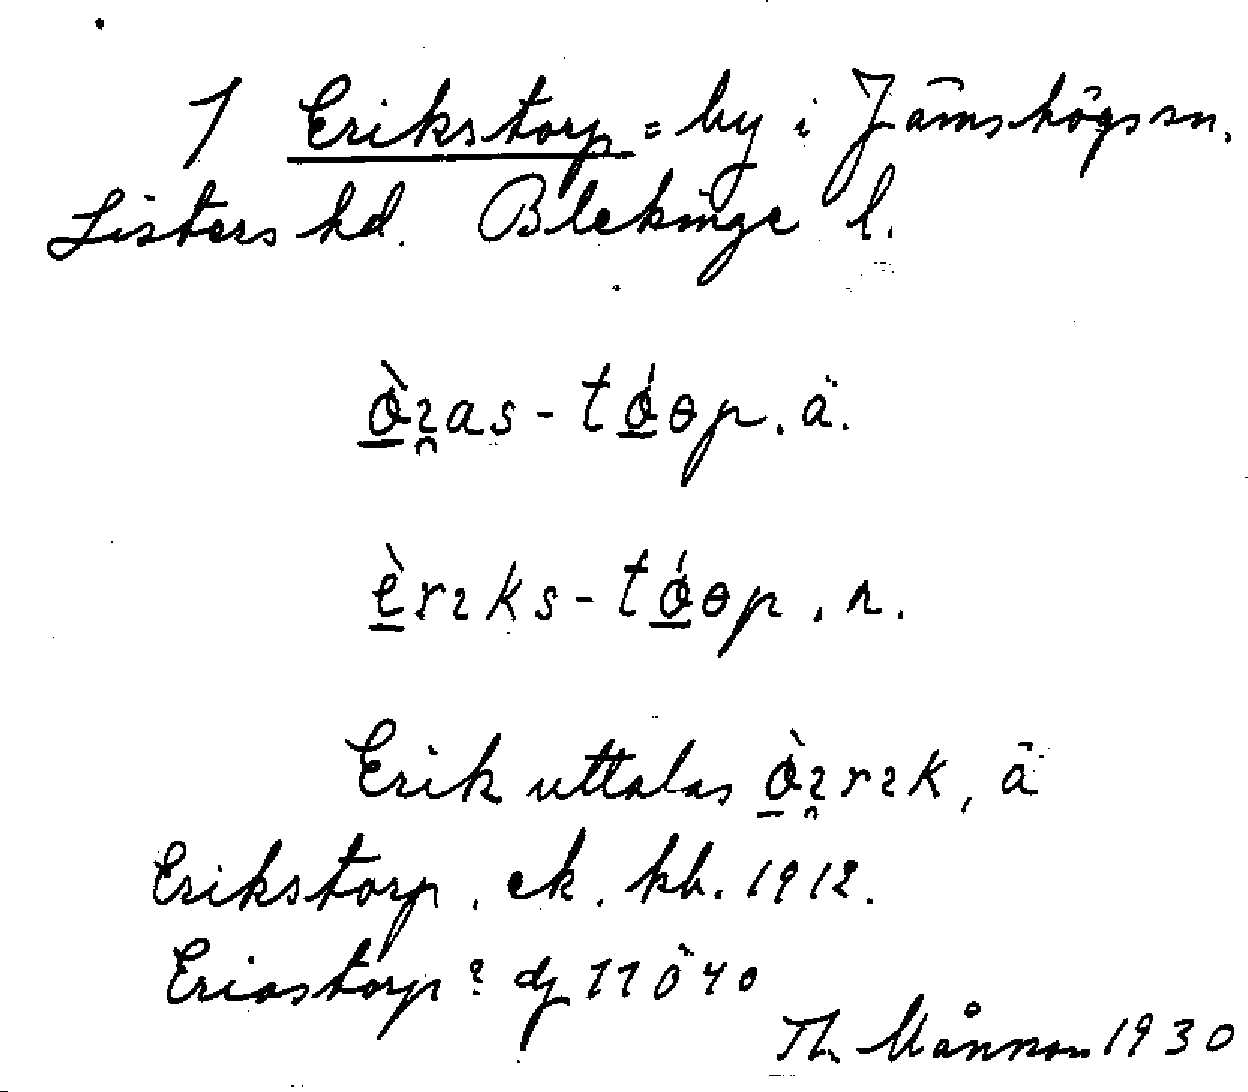 1 Erikstorp = by i Jämshögs sn.
Listers hd. Blekinge l.
ò̱ɿ̯as - tó̱ɵp. ä.
è̱rɿks - tó̱ɵp. n.
Erik uttalas ò̱ɿ̯rɿk, ä
Erikstorp. ek. kb. 1912.
Eriastorp? dj 11 ö 40
Th. Månnson 1930